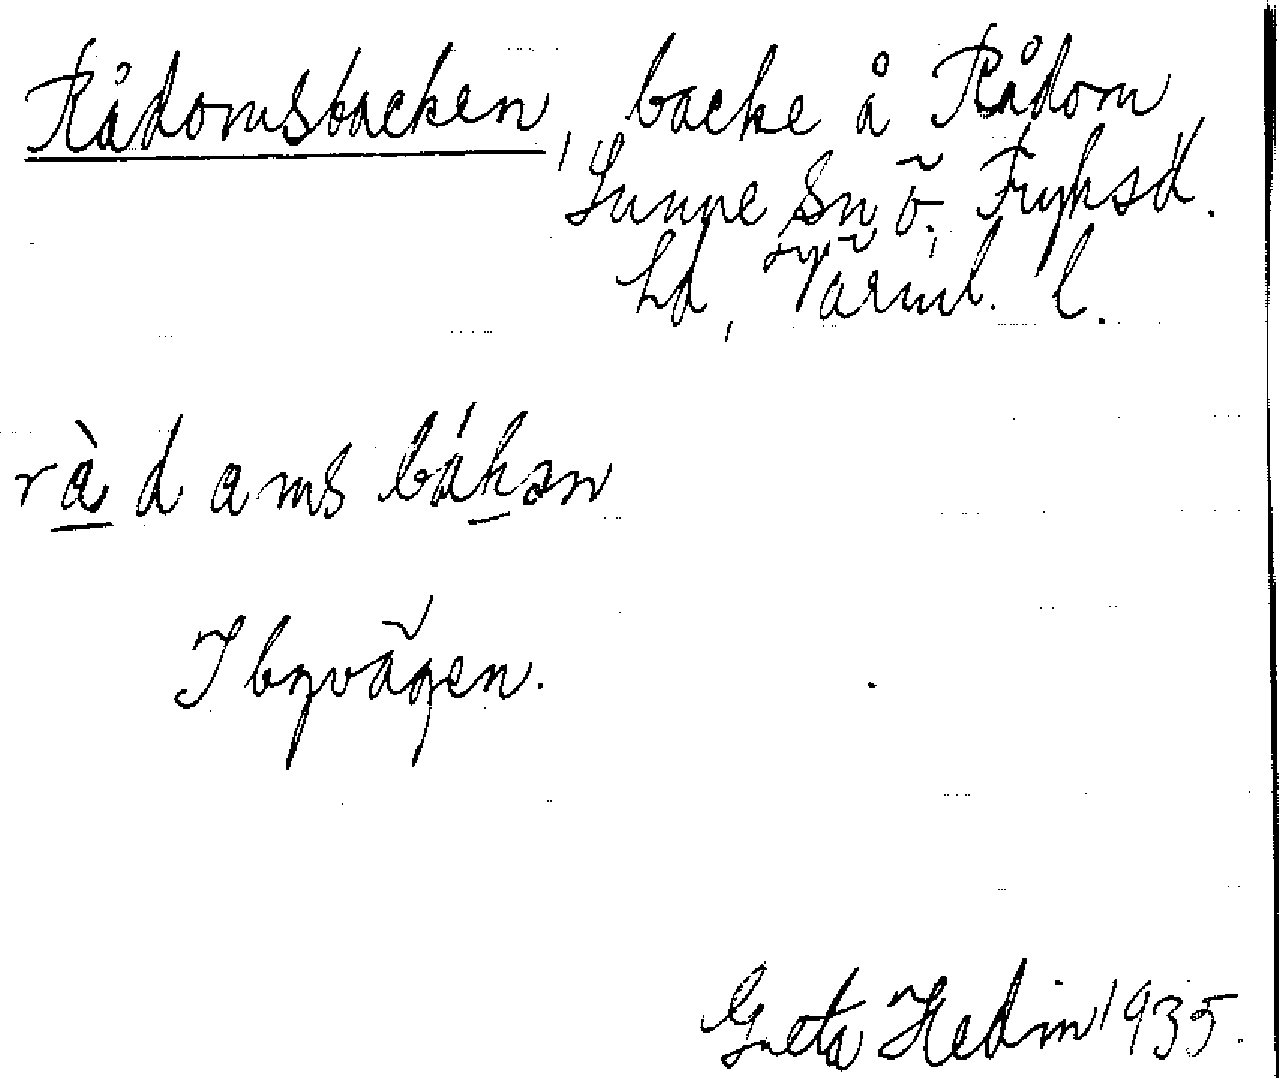 Rådomsbacken, backe å Rådom,
Sunne Sn ö. Fryksd.
hd, Värml. l.
ràdamsbákən
I byvägen.
Greta Hedin 1935.